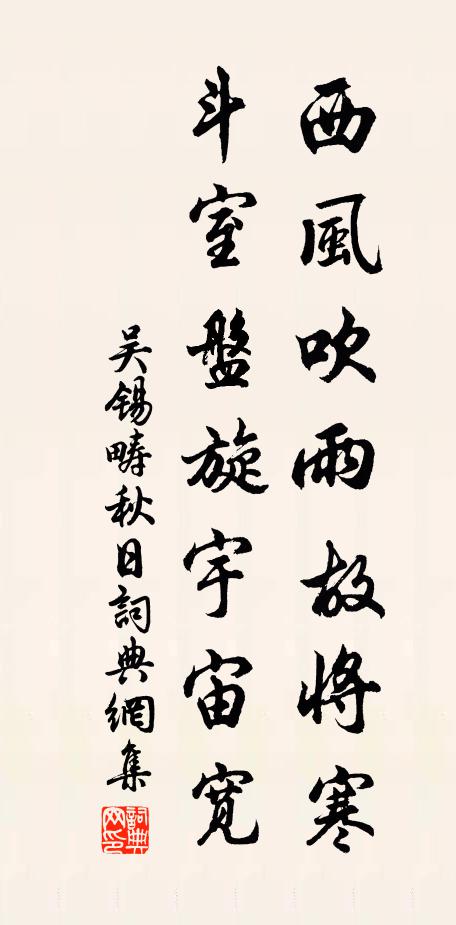 西風吹雨故將寒
斗室盤旋宇宙寬
吳錫疇秋日詞典網集
詞典網印